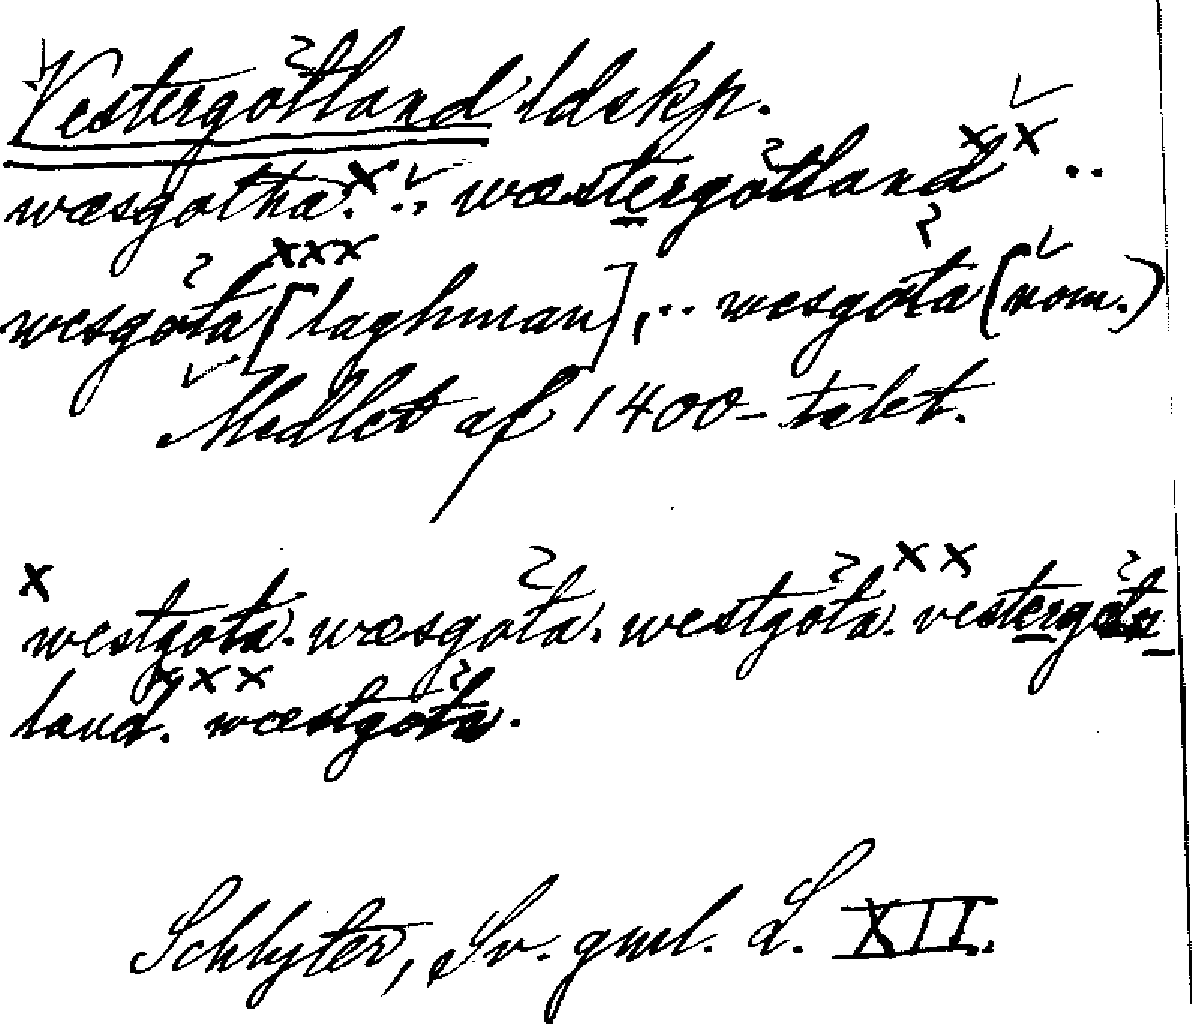 Vestergötland ldskp.
wæsgotha.x .. wæstergötland x x ..
wesgöta xxx [laghman], .. wesgöta (nom.)
Medlet af 1400-talet.
x
westgota. wæsgöta. westgöta. xx vestergötn
land. xxx wæstgöta.
Schlyter, Sv. gml. L. XII.